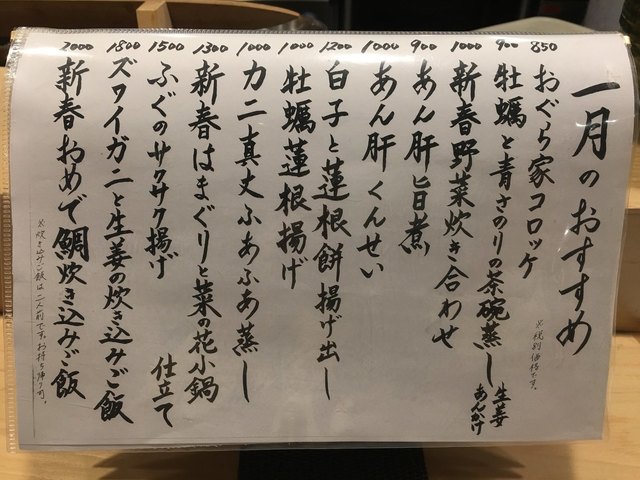 一月のおすすめ
※税別価格です。
850 おぐら家コロッケ
900 牡蠣と青さのりの茶碗蒸し 生姜あんかけ
1000 新春野菜炊き合わせ
900 あん肝旨煮
1000 あん肝くんせい
1200 白子と蓮根餅揚げ出し
1000 牡蠣蓮根揚げ
1000 カニ真丈ふあふあ蒸し
1300 新春はまぐりと菜の花小鍋仕立て
1500 ふぐのサクサク揚げ
1800 ズワイガニと生姜の炊き込みご飯
2000 新春おめで鯛炊き込みご飯
※炊き込みご飯は二人前です。お持ち帰り可。